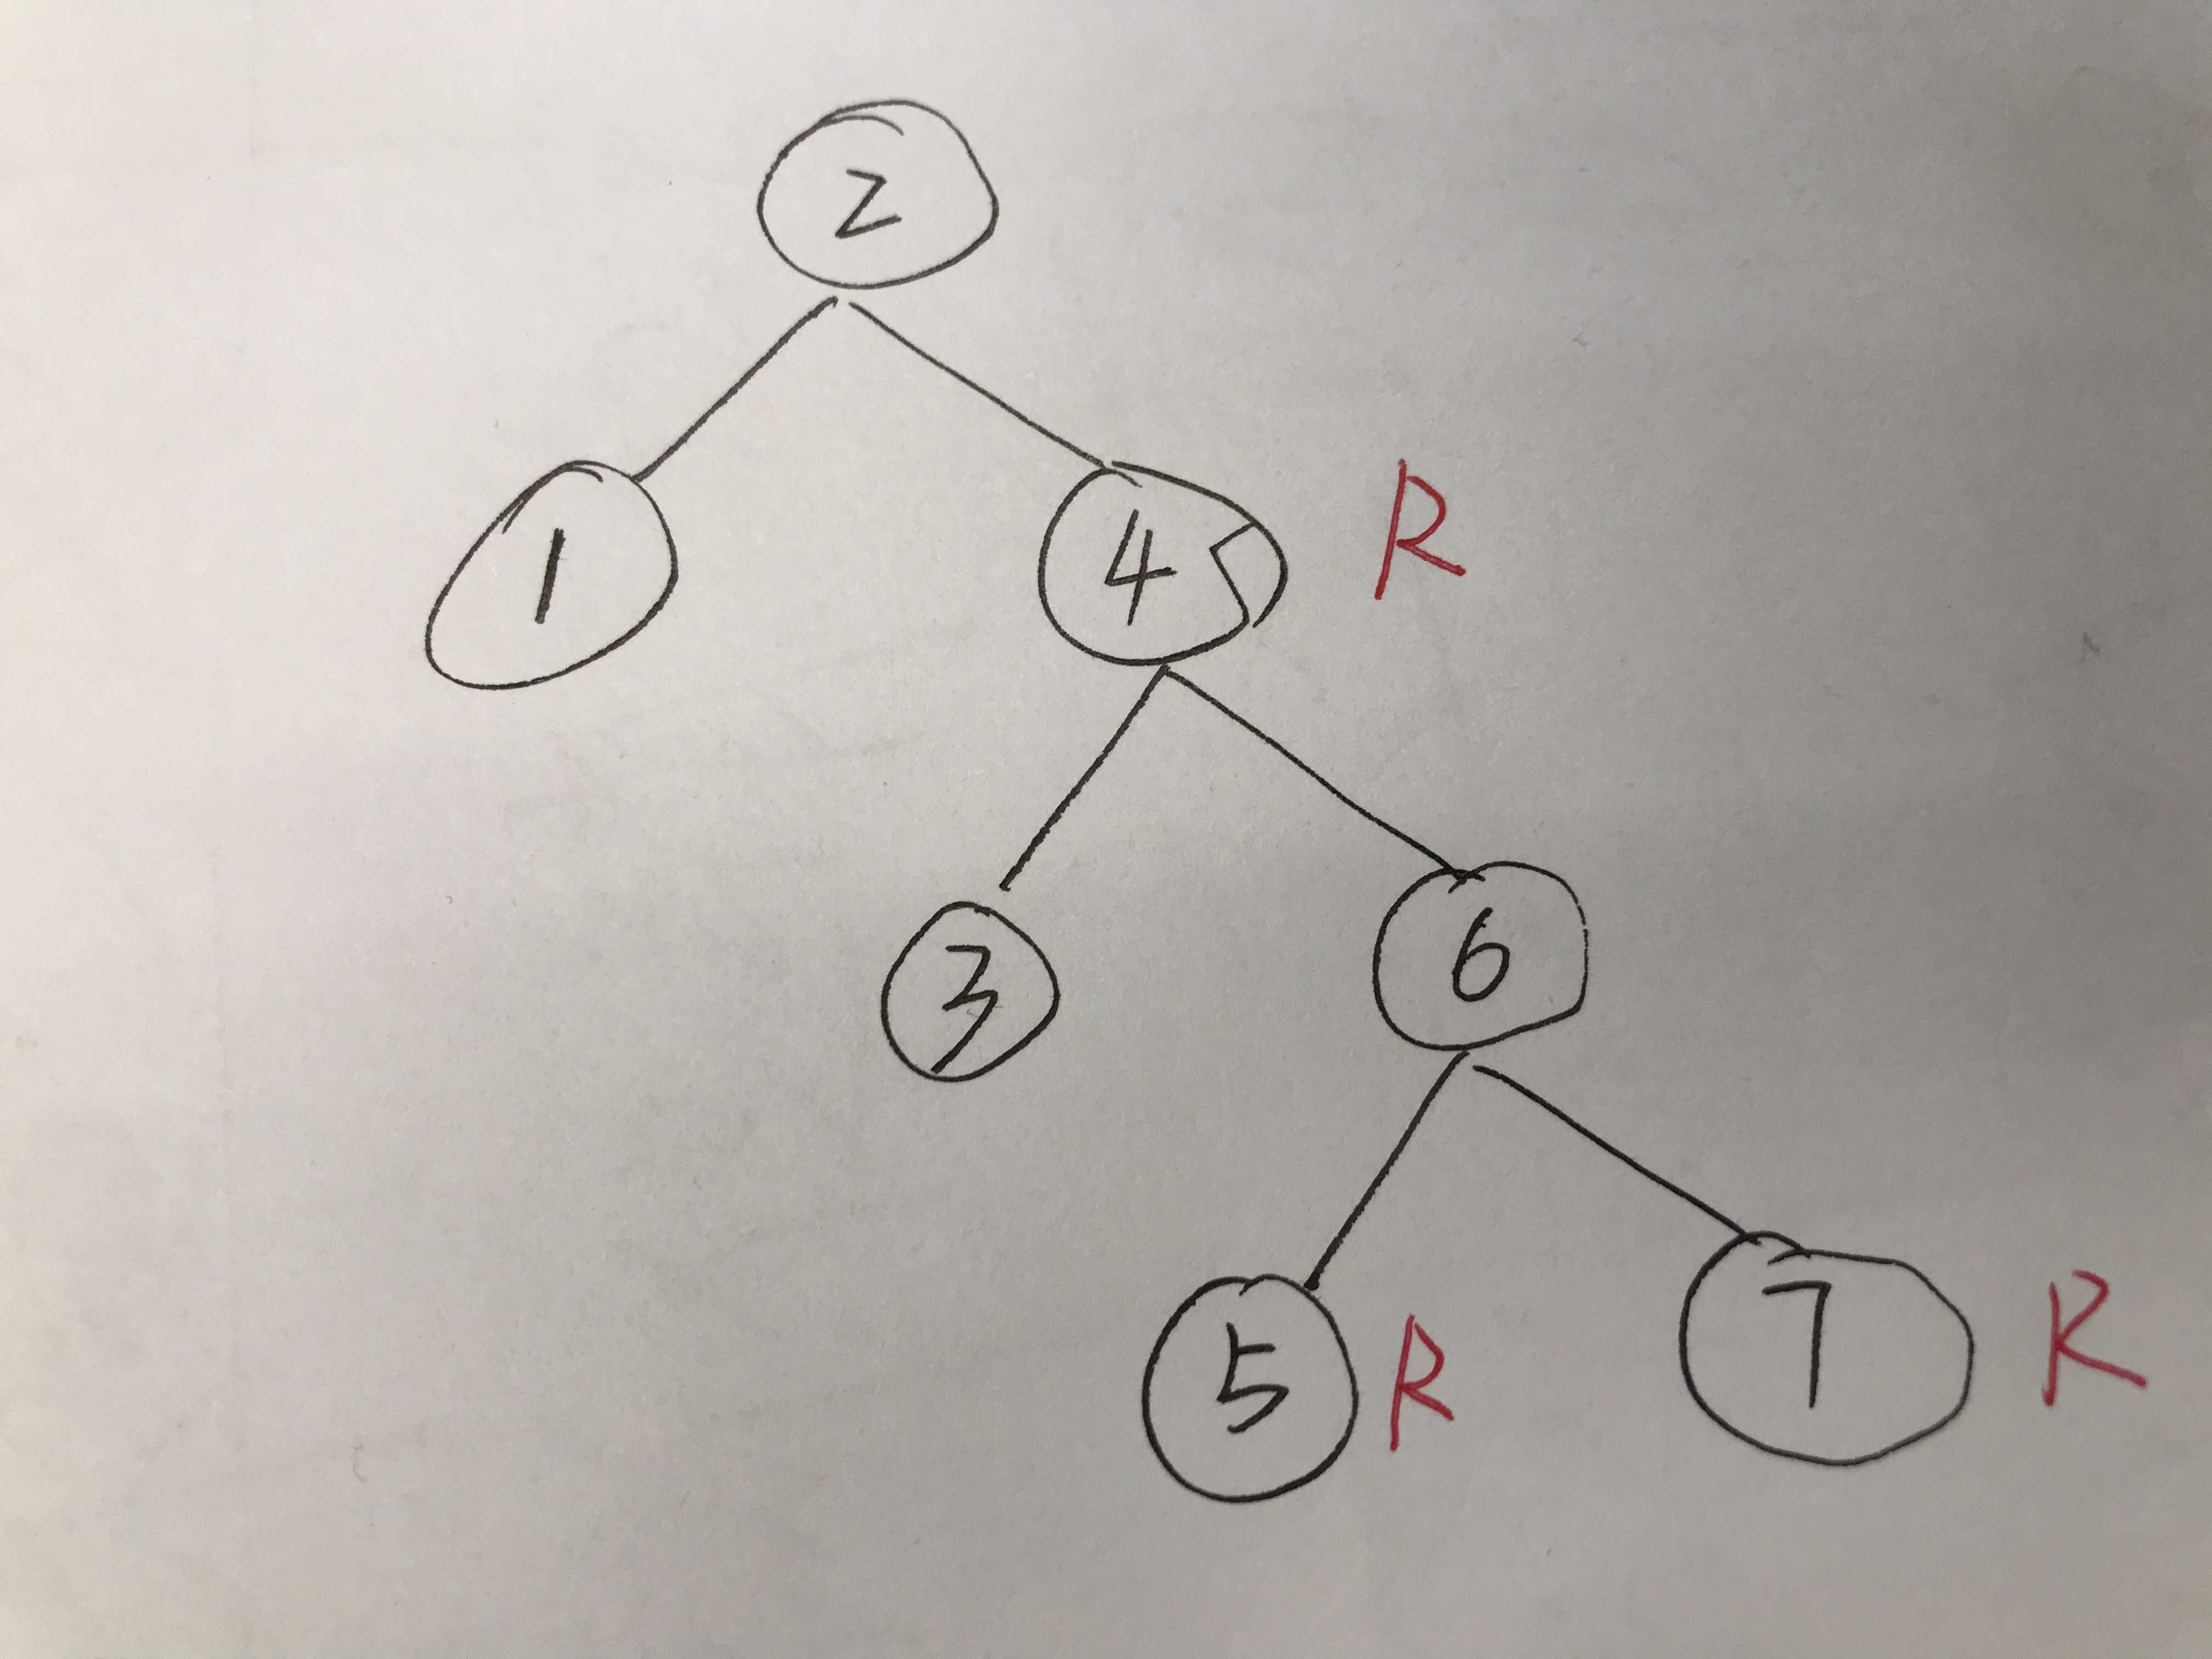 2
1 4 R
3 6
5 R 7 R